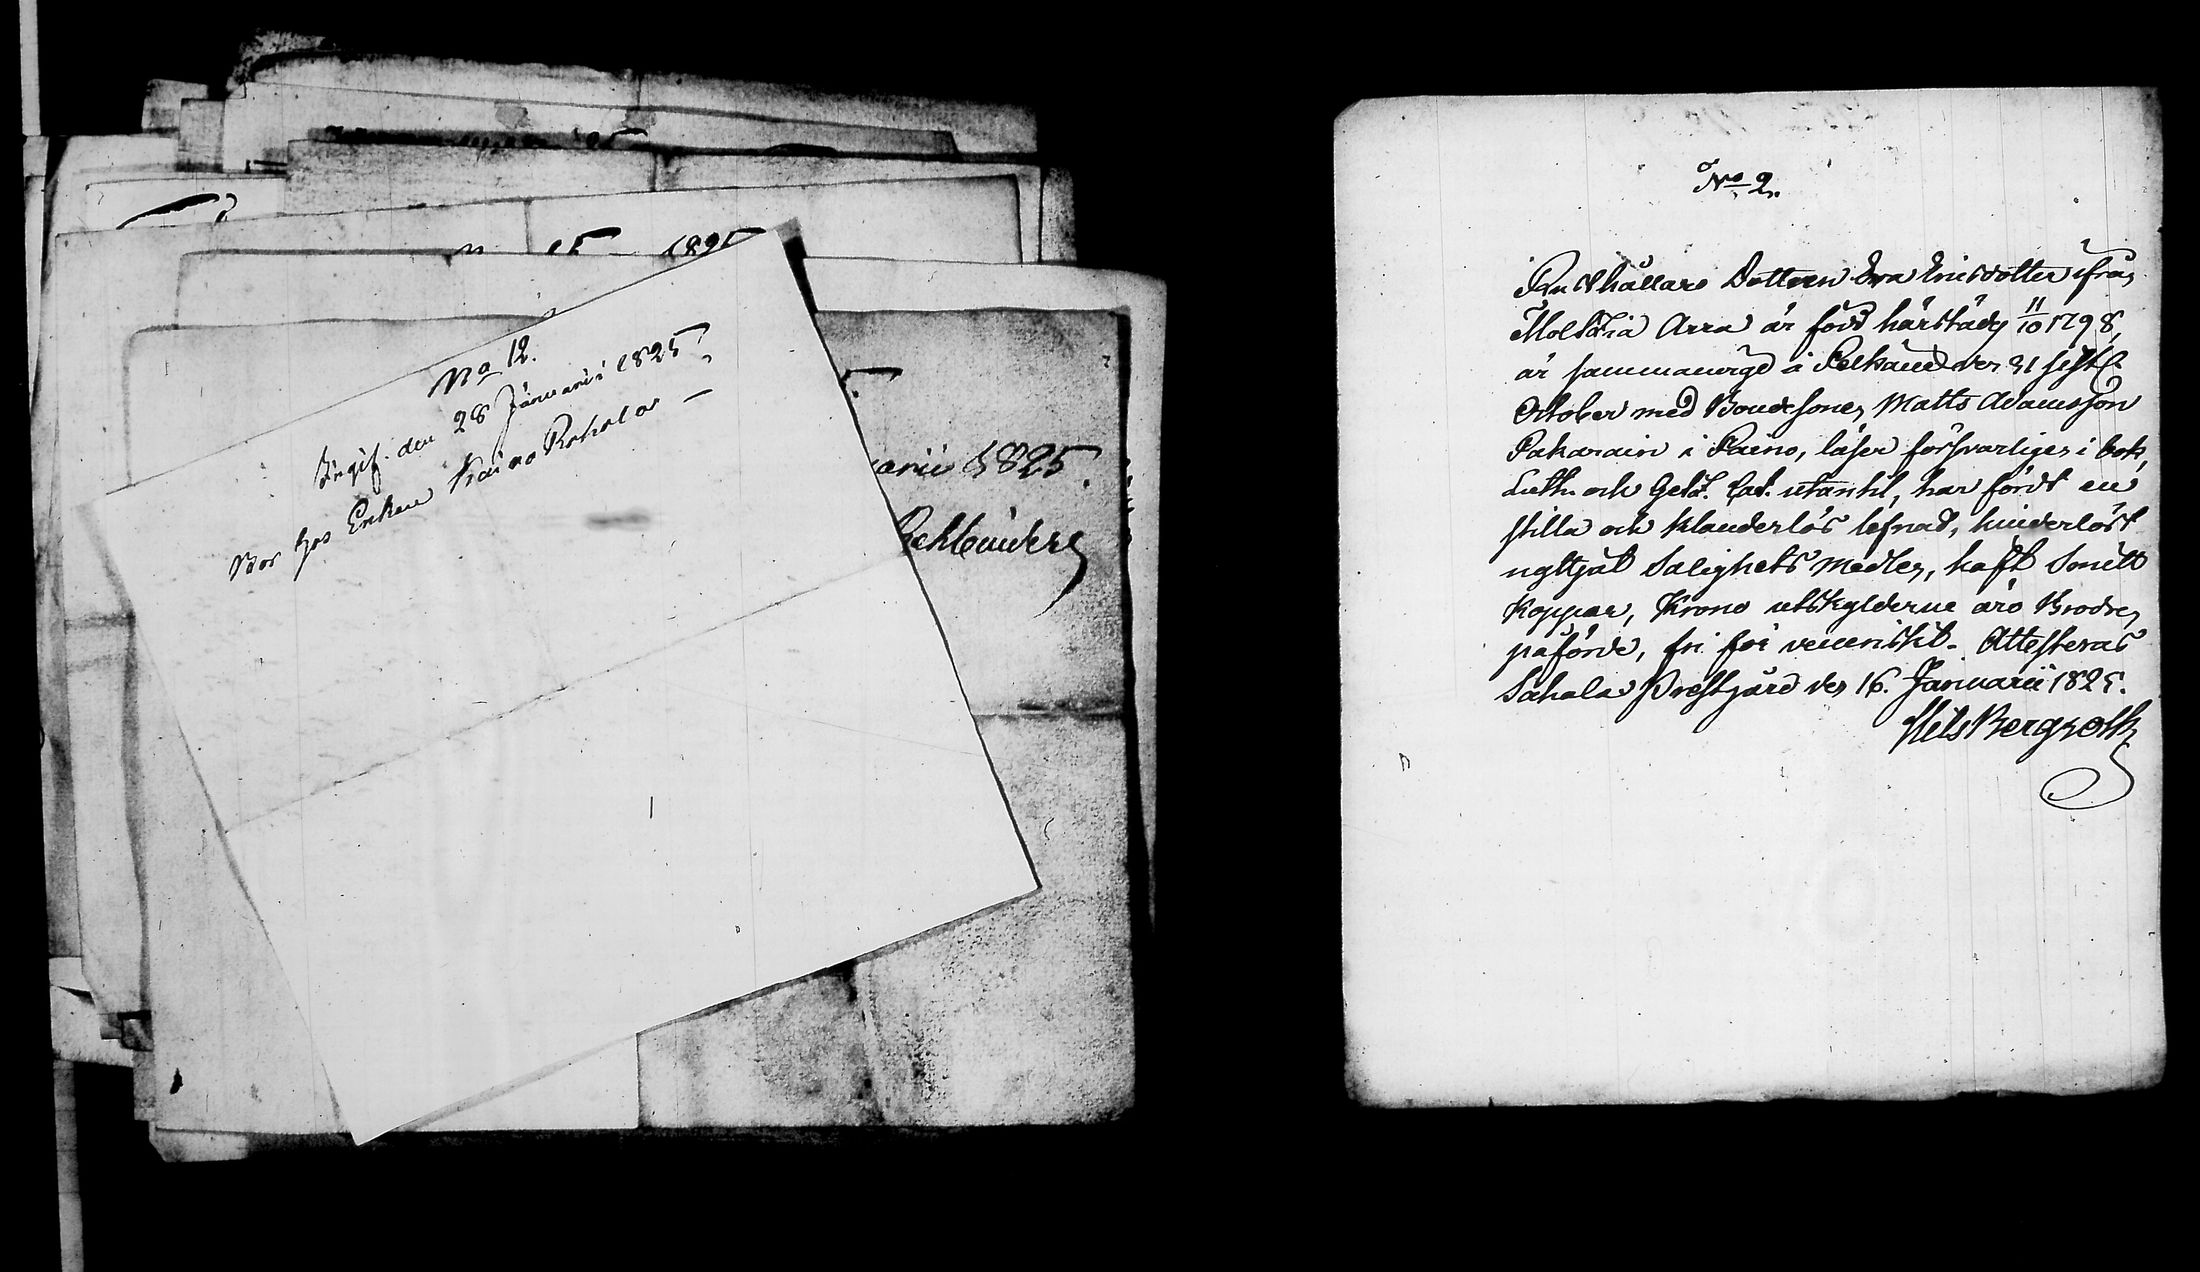 No 12.
Ingif. den 28 Januarii 1825
Bor hos Enkan Kaino Rokolas
arii 1825.
No 2.
Dottren Eva Ericsdotter ifrån
Arra är född härstädes 11/10 1798,
är sammanvigd i Pelkäne den 31 sistl.
October med Bondesonen Matts Adamsson
Pakarain i Paino, läser försvarligen i bok,
Luth. och Gezel. Cat. utantil, har fördt en
stilla och klanderlös lefnad, hinderlöst
nyttjat Salighets medlen, haft Smitt
koppar, Krono utskylderne äro Brodren
påförde, fri för veneriskt. Attesteras
Sahalax Prestgård den 16. Januarii 1825.
Nils Bergroth